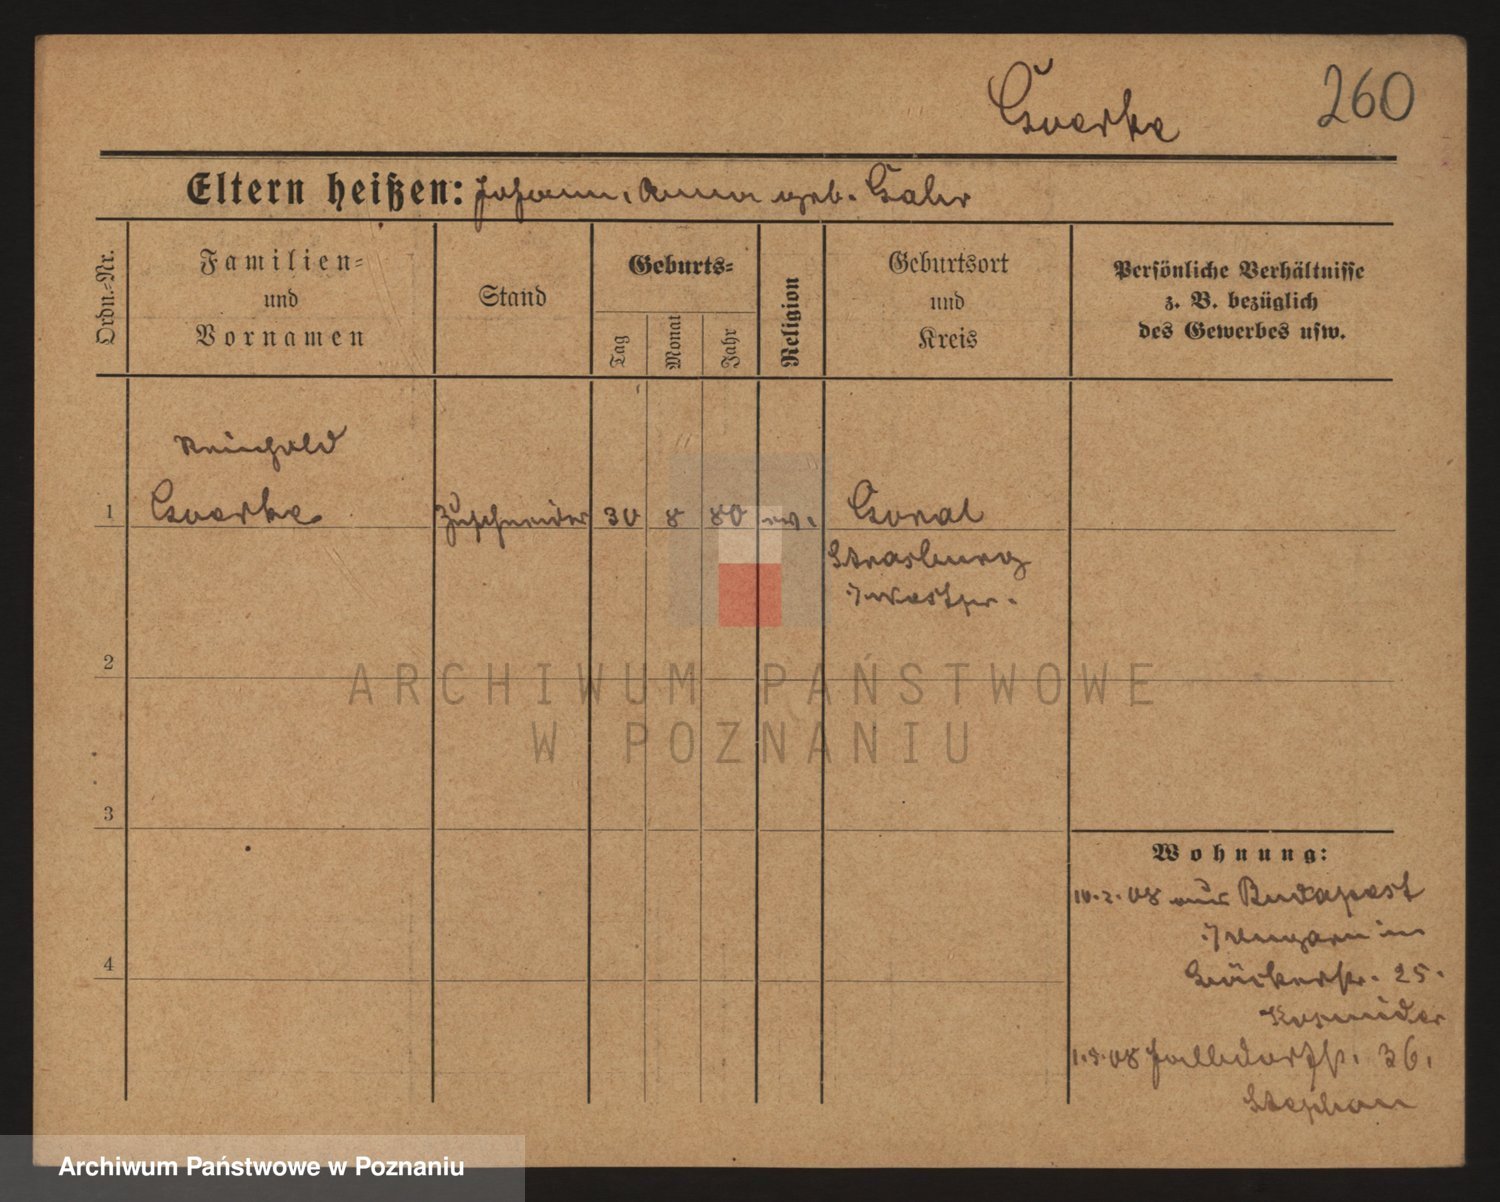 Goerke
260
Eltern heißen: Johann, Anna geb. Gahr
Ordn.-Nr.
Familien-
und
Vornamen
Stand
Geburts-
Tag
Monat
Jahr
Religion
Geburtsort
und
Kreis
Persönliche Verhältnisse
z. B. bezüglich
des Gewerbes usw.
Reinhold
1 Goerke Zuschneider 30 8 80 ev. Goral
Strasburg
i/Westpr.
2
ARCHIWUM PAŃSTWOWE
W POZNANIU
3
Wohnung:
10.2.08 aus Budapest
i/Ungarn in
25.
4
Kosmider
1.3.08 36.
Stephan
Archiwum Państwowe w Poznaniu